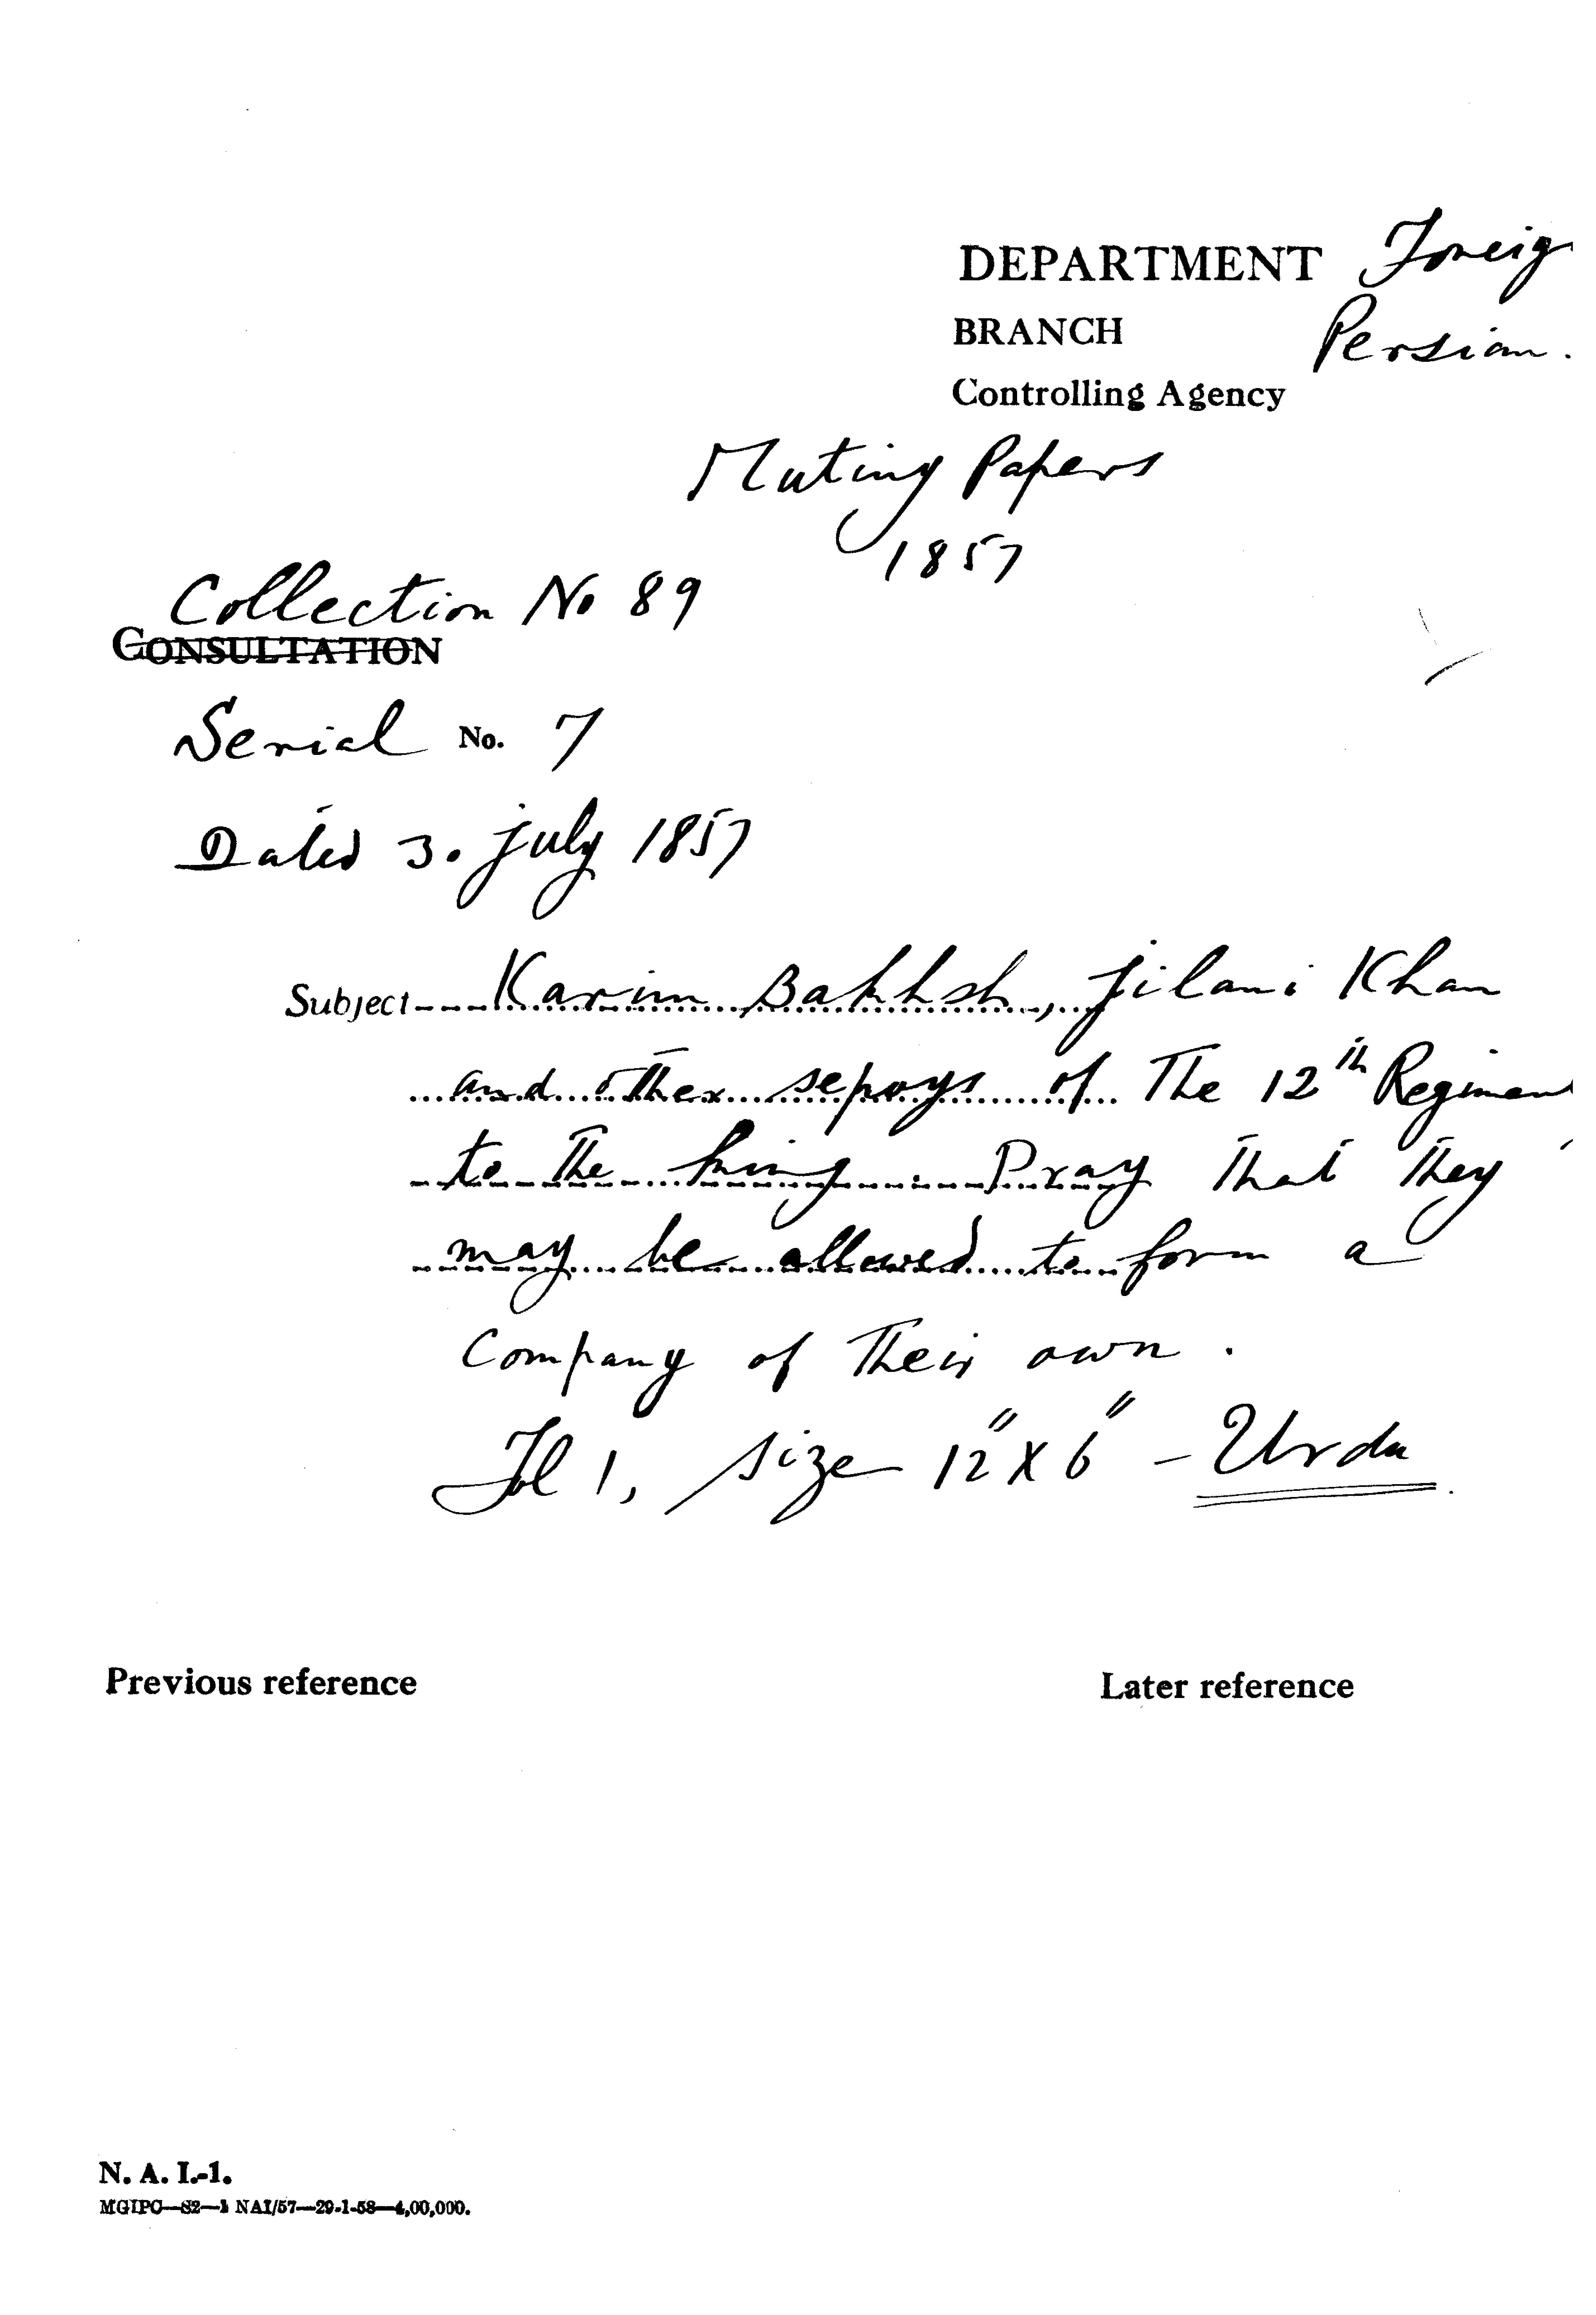 DEPARTMENT Foreig
BRANCH Persian.
Controlling Agency
Mutiny Papers
1857
Collection No 89
CONSULTATION
Serial No. 7
Dated 3. July 1857
Subject Karim Bakhsh, Jilani Khan
and other sepoys of The 12th Regiment
to The king. Pray That They
may be allowed to form a
Company of Their own.
Fl 1, size 12" X 6" - Urdu.
Previous reference
Later reference
N. A. I.-1.
MGIPC—S2—1 NAI/57—29-1-58—4,00,000.